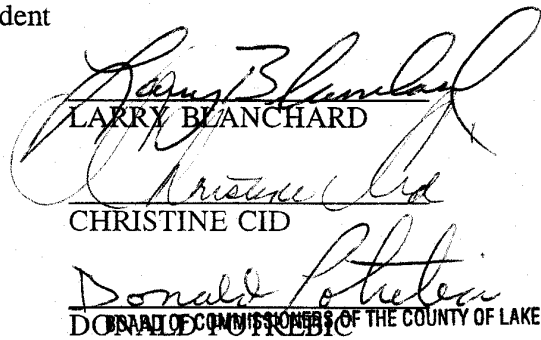 dent
Larry Blanchard
LARRY BLANCHARD
Christine Cid
CHRISTINE CID
Donald Potrebic
DONALD POTREBIC
BOARD OF COMMISSIONERS OF THE COUNTY OF LAKE